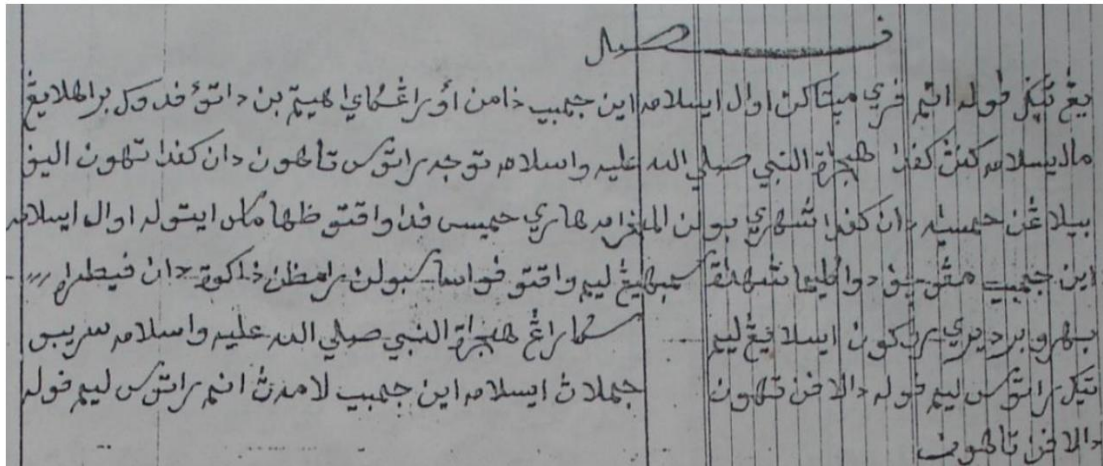 فصل
يڠ تيݢ فوله انم فري مپتاكن اول ايسلام اين جمبي ذامن أورڠكاي هيتم بن داتؤ فدوك برهلا يڠ
كفد هجرة النبي صلي الله عليه واسلام توجه راتوس تاهون دان كفد تهون اليف
بيلاڠن خمسيه دان كفد سهري بولن المحرم هاري خميس فد واقتو ظهر مك ايتوله اول ايسلام
اين جمبي مڠوچف دوا كليمة شهادة سمبهيڠ ليم واقتو فواسا سبولن رمظن ذاكوة دان فيطراه
بهرو برديري ركون ايسلام يڠ ليم سكارڠ هجرة النبي صلي الله عليه واسلام سريبو
تيݢ راتوس ليم فوله دالافن تهون جملاڽ ايسلام اين جمبي لامڽ انم راتوس ليم فوله
دالافن تاهون